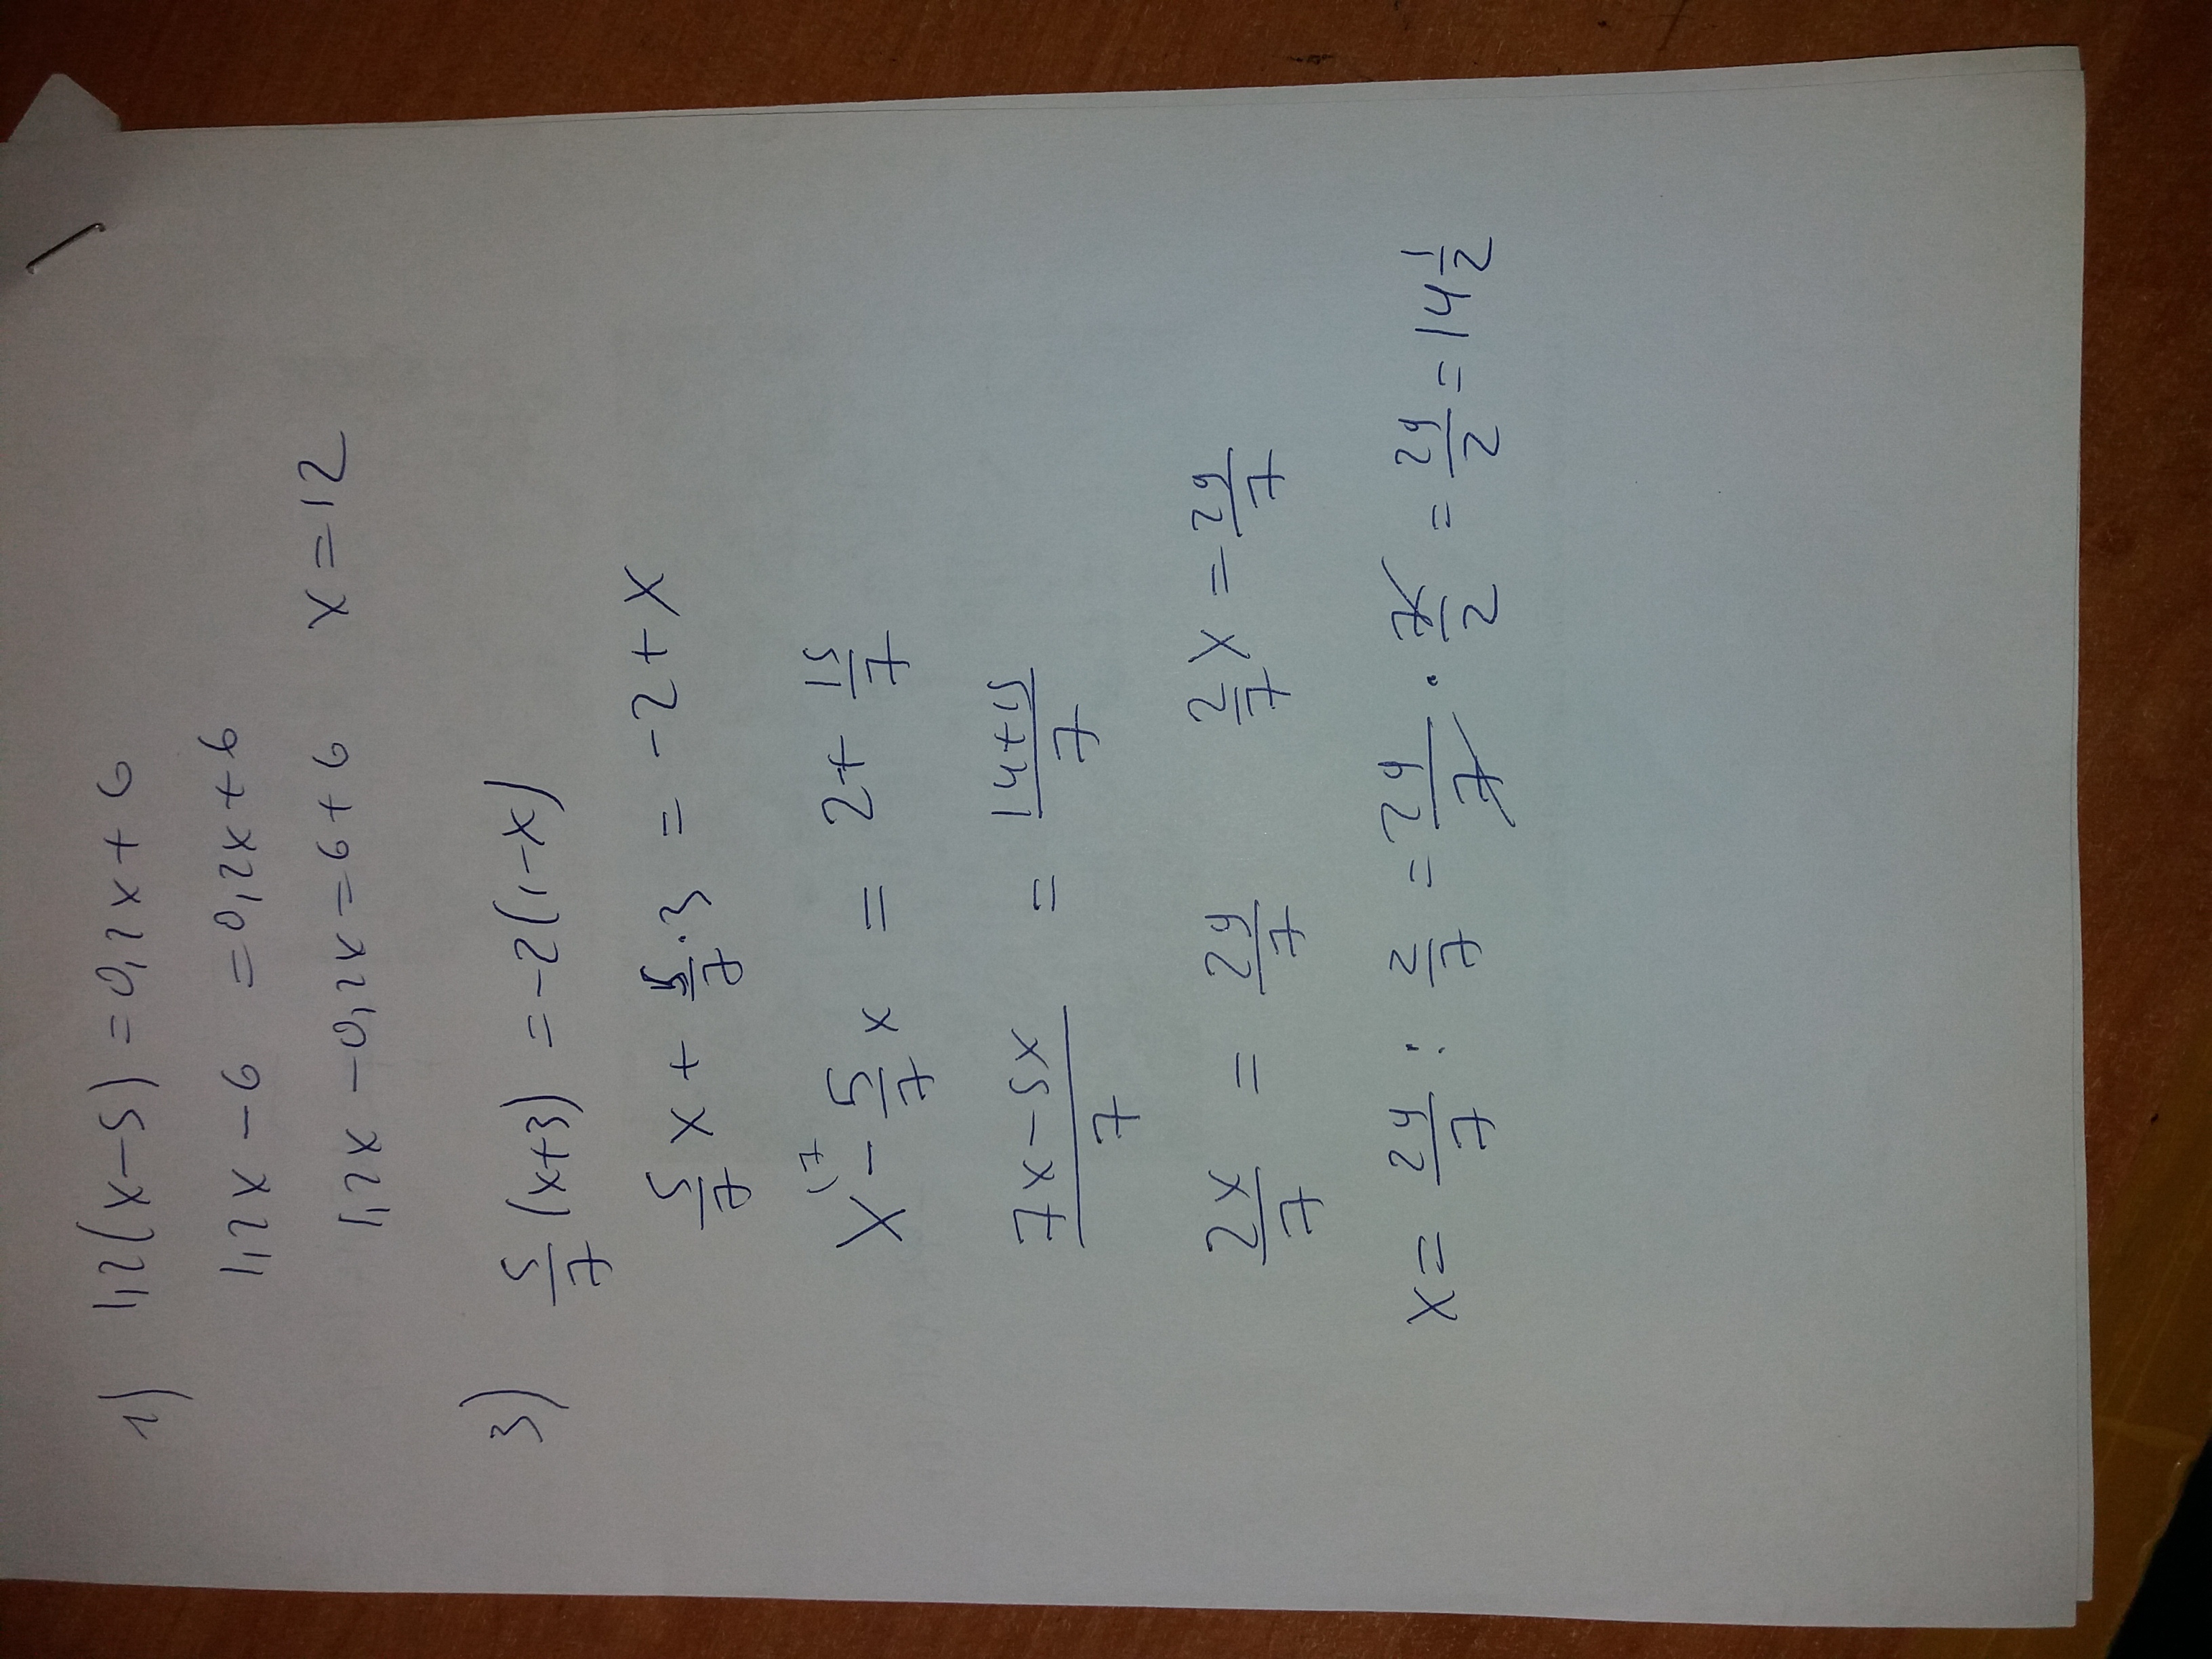 1) 1,2(x-5) = 0,2x + 6
1,2x - 6 = 0,2x + 6
1,2x - 0,2x = 6 + 6 x = 12
3) 5/7 (x+3) = -2(1-x)
5/7 x + 5/7 · 3 = -2 + x
x^{17} - 5/7 x = 2 + 15/7
7x - 5x / 7 = 14+15 / 7
2x/7 = 29/7 2/7 x = 29/7
x = 29/7 : 2/7 = 29/7 · 7/2 = 29/2 = 14 1/2